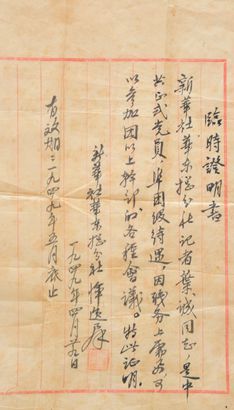 臨時證明書
新華社華東總分社記者葉誠同志，是中
共正式党員，准团级待遇，因职务上需要可
以参加团以上幹部的各種會議。特此证明。
新華社華東总分社
一九四九年四月廿九日
有效期：一九四九年五月底止